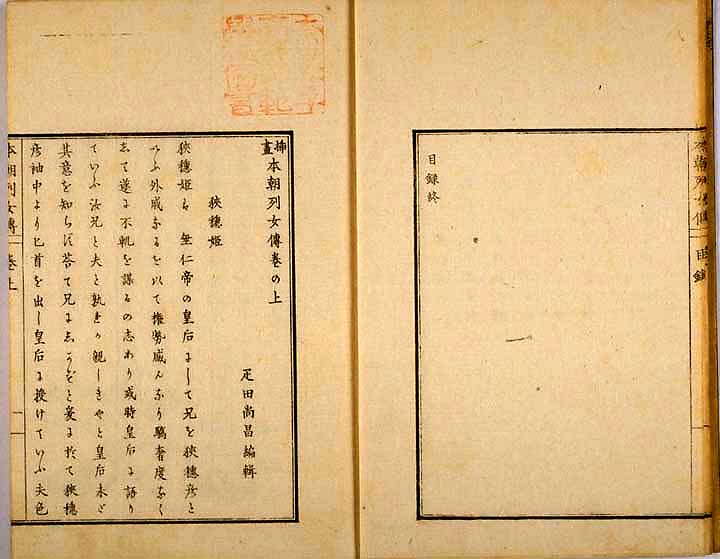 目録終
本朝列女傳
目録
挿畫本朝列女傳巻の上
疋田尚昌編輯
狭穂姫
狭穂姫ハ垂仁帝の皇后にして兄を狭穂彦と
いふ外戚なるを以て権勢盛んなり驕奢度なく
して遂に不軌を謀るの志あり或時皇后に語り
ていふ汝兄と夫と孰れか親しきやと皇后未だ
其意を知らず答て兄にしかずと爰に於て狭穂
彦袖中より匕首を出し皇后に授けていふ夫色
本朝列女傳
巻上
一